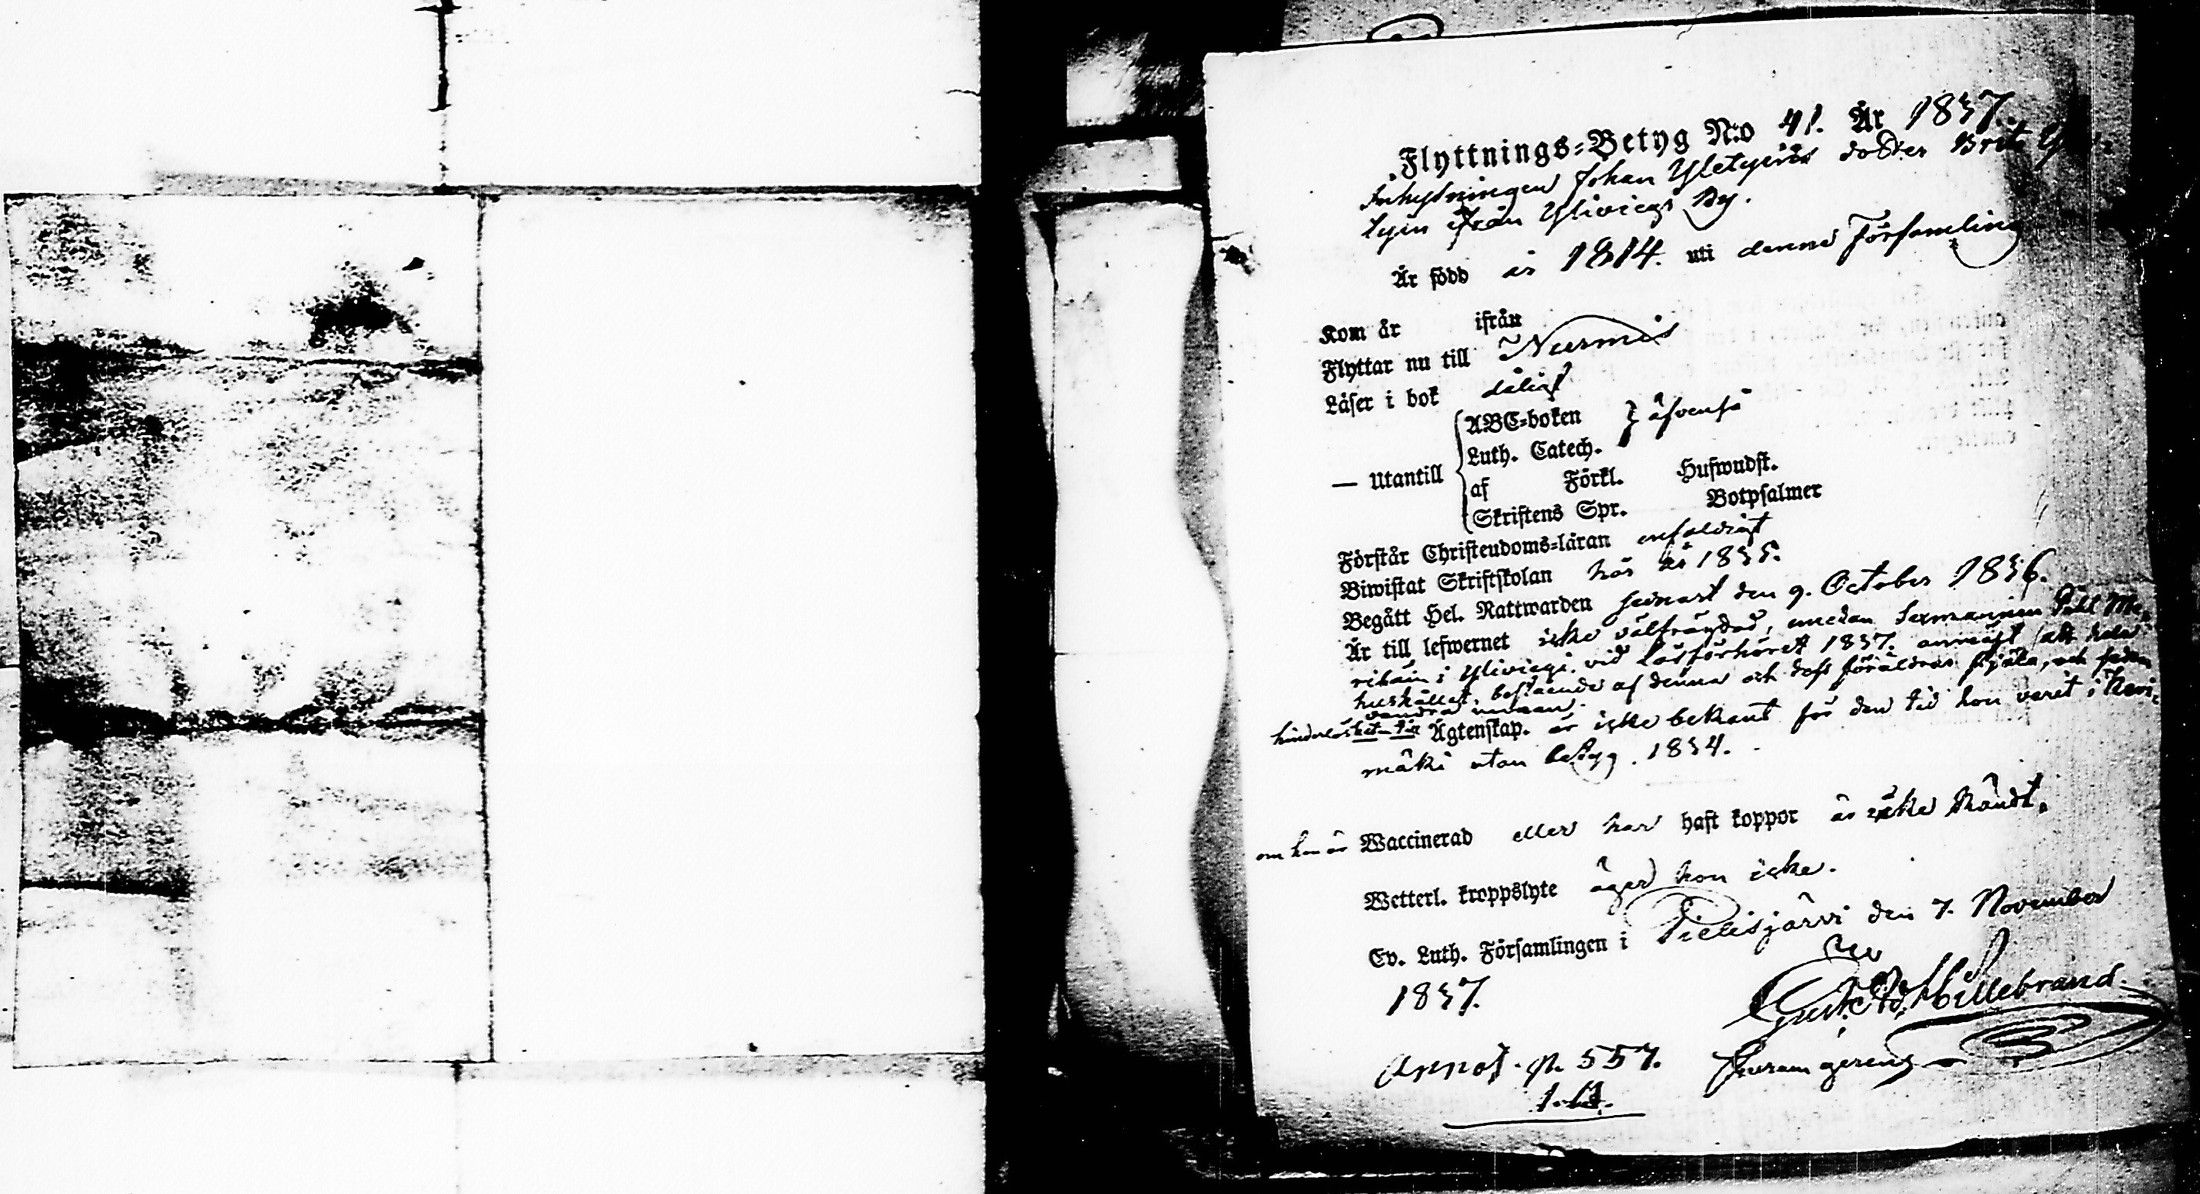 Flyttnings-Betyg N:o 41. År 1837.
Inhysningen Johan Yletyinens dotter Brita Yle-
tyin från Yliviexi By.
Är född år 1814. uti denna Församling
Kom år ifrån
Flyttar nu till Nurmis
Läser i bok dåligt
ABC-boken
Luth. Catech. } äfvenså
— Utantill af Förkl. Hufwudst.
Skriftens Spr. Botpsalmer
Förstår Christendoms-läran enfaldigt
Biwistat Skriftskolan här år 1835.
Begått Hel. Nattwarden senast den 9. October 1836.
Är till lefwernet icke välfräjdad, medan Sexmannen Påhl
i Yliviexi vid Läsförhöret 1837. anmält att hela
hushållet bestående af denna och dess föräldrar stjäla, och
Ägtenskap. är icke bekant för den tid hon varit i
mäki utan betyg. 1834.
om hon är Waccinerad eller har haft koppor är icke kändt.
Wetterl. kroppslyte äger hon icke.
Ev. Luth. Församlingen i Pielisjärvi den 7. November
1837.
Hillebrand.
Annot. p. 557.